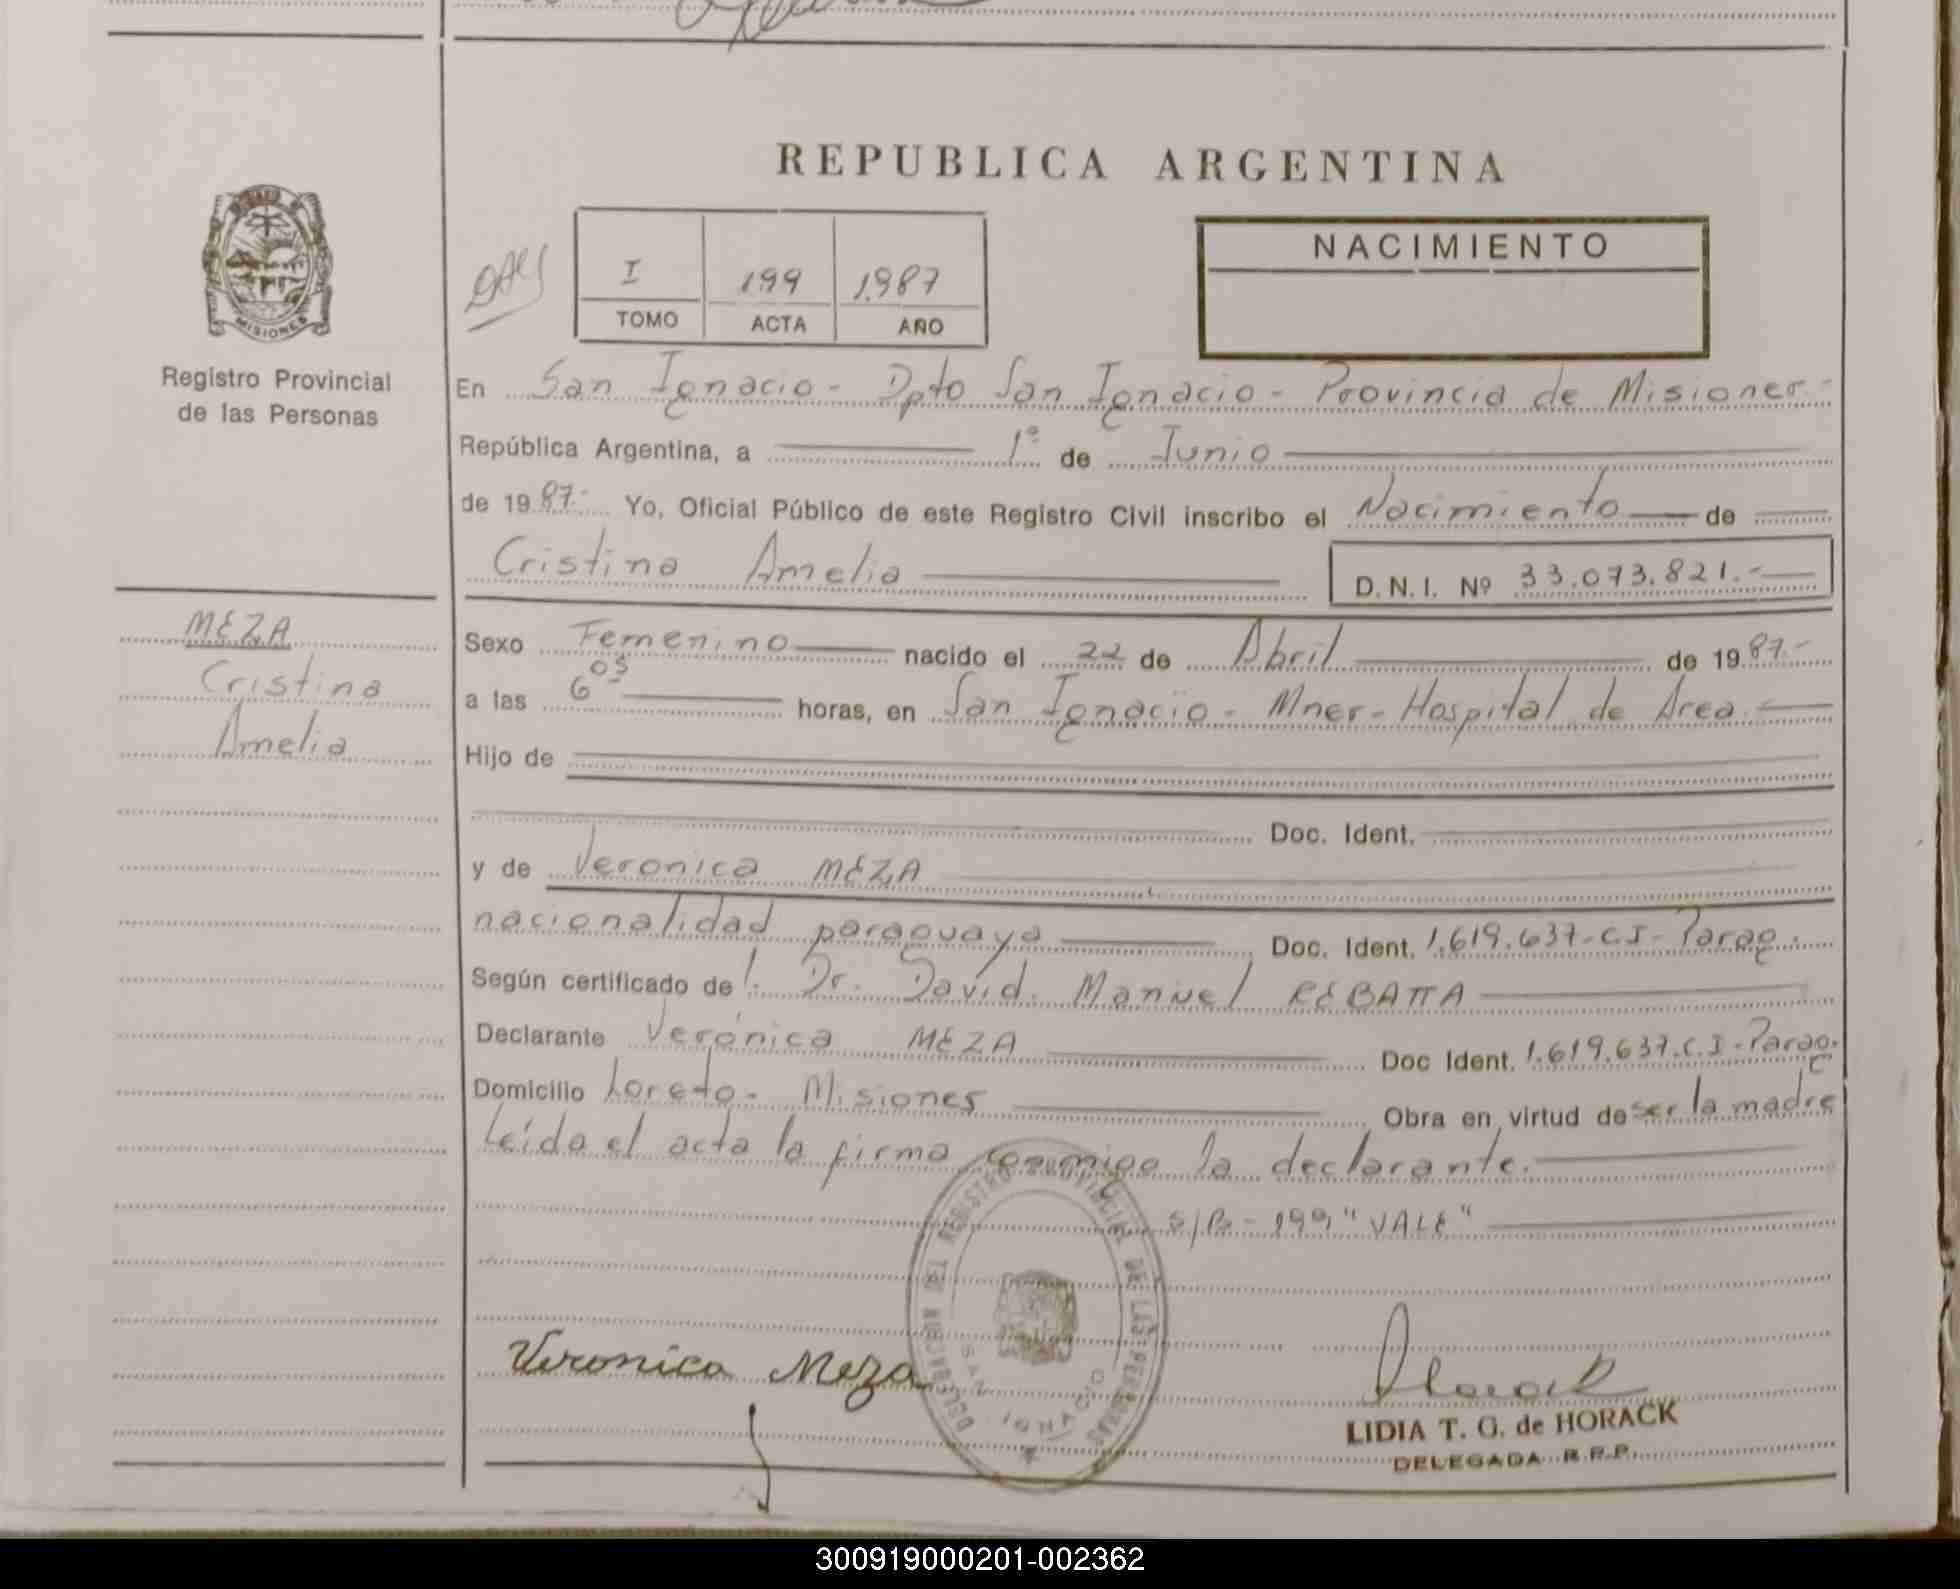 REPUBLICA ARGENTINA
MISIONES
Registro Provincial
de las Personas
I 199 1.987
TOMO ACTA AÑO
NACIMIENTO
En San Ignacio - Dpto San Ignacio - Provincia de Misiones.-
República Argentina, a 1º de Junio
de 1987.- Yo, Oficial Público de este Registro Civil inscribo el Nacimiento de
Cristina Amelia D.N.I. Nº 33.073.821.-
MEZA
Cristina
Amelia
Sexo Femenino nacido el 22 de Abril de 1987.-
a las 6 05 horas, en San Ignacio - Mnes - Hospital de Area.
Hijo de
Doc. Ident.
y de Veronica MEZA
nacionalidad paraguaya Doc. Ident. 1.619.637-C.I-Parag.
Según certificado de l. Dr. David Manuel REBATTA
Declarante Verónica MEZA Doc Ident. 1.619.637.C.I-Parag.
Domicilio Loreto - Misiones Obra en virtud de ser la madre
Leída el acta la firma conmigo la declarante.
S/R - 199 "VALE"
Veronica Meza
DELEGACION DEL REGISTRO PROVINCIAL DE LAS PERSONAS
SAN IGNACIO
Horack
LIDIA T. G. de HORACK
DELEGADA R.P.P.
300919000201-002362